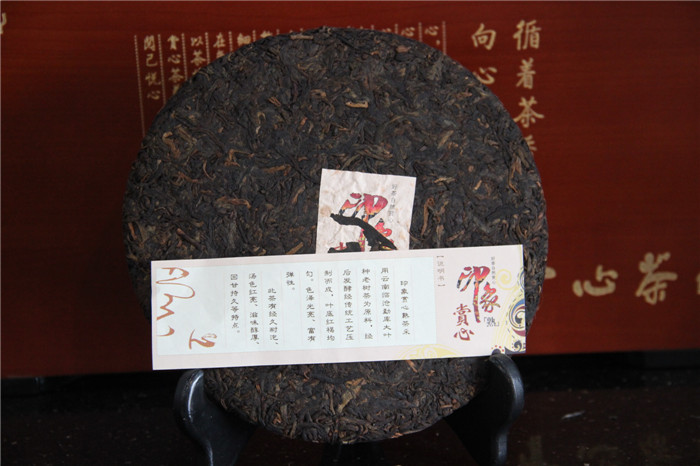 循着茶
向心
心茶
以茶
赏心茶
闲己悦心
印象
印象
赏心
熟
【说明书】
印象赏心熟茶采
用云南临沧勐库大叶
种老树茶为原料，经
后发酵经传统工艺压
制而成，叶底红褐均
匀，色泽光亮、富有
弹性。
此茶有经久耐泡、
汤色红亮、滋味醇厚、
回甘持久等特点。